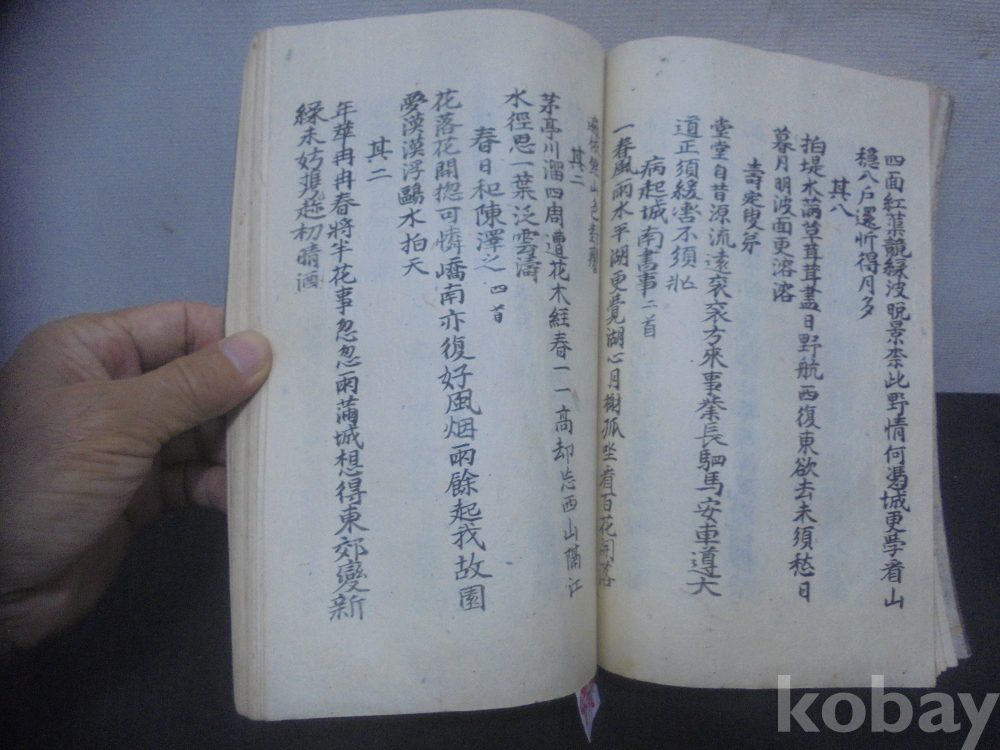 四面紅葉競緑波晩景柰此野情何馮城更學看山
穏八戸還忻得月多
其八
拍堤水滿草茸茸盖日野航西復東欲去未須愁日
暮月明波面更溶溶
壽定叟弟
堂堂自昔源流遠衮衮方來事業長駟馬安車導大
道正須緩轡不須忙
病起城南書事二首
一春風雨水平湖更覺湖心月榭孤坐看百花開落
山色
其二
茅亭川溜四周遭花木経春一一高却忘西山隔江
水徑思一葉泛雲濤
春日和陳澤之四首
花落花開揔可憐嶠南亦復好風烟雨餘起我故園
夢漠漠浮鷗水拍天
其二
年華冉冉春將半花事忽忽雨滿城想得東郊變新
緑未妨初晴酒
kobay